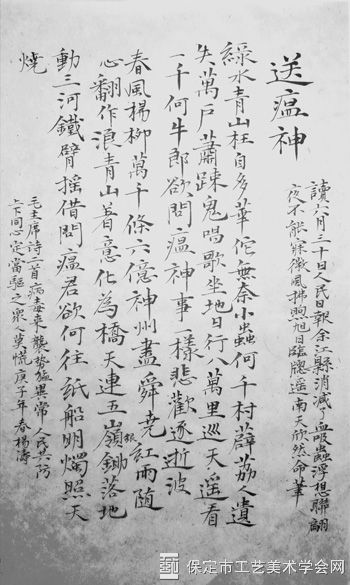 送瘟神
讀六月三十日人民日報余江縣消滅了血吸蟲浮想聯翩
夜不能寐微風拂煦旭日臨牕遥南天欣然命筆
綠水青山枉自多華佗無奈小蟲何千村薜荔人遺
失萬户蕭疎鬼唱歌坐地日行八萬里巡天遥看
一千何牛郎欲問瘟神事一樣悲歡逐逝波
春風楊柳萬千條六億神州盡舜堯紅雨随
心翻作浪青山着意化為橋天連五嶺銀鋤落地
動三河鐵臂摇借問瘟君欲何往纸船明燭照天
燒
毛主席詩二首病毒來襲勢猛異常人民共防
上下同心定當驅之衆人莫慌庚子年春楊濤
保定市工艺美术学会网